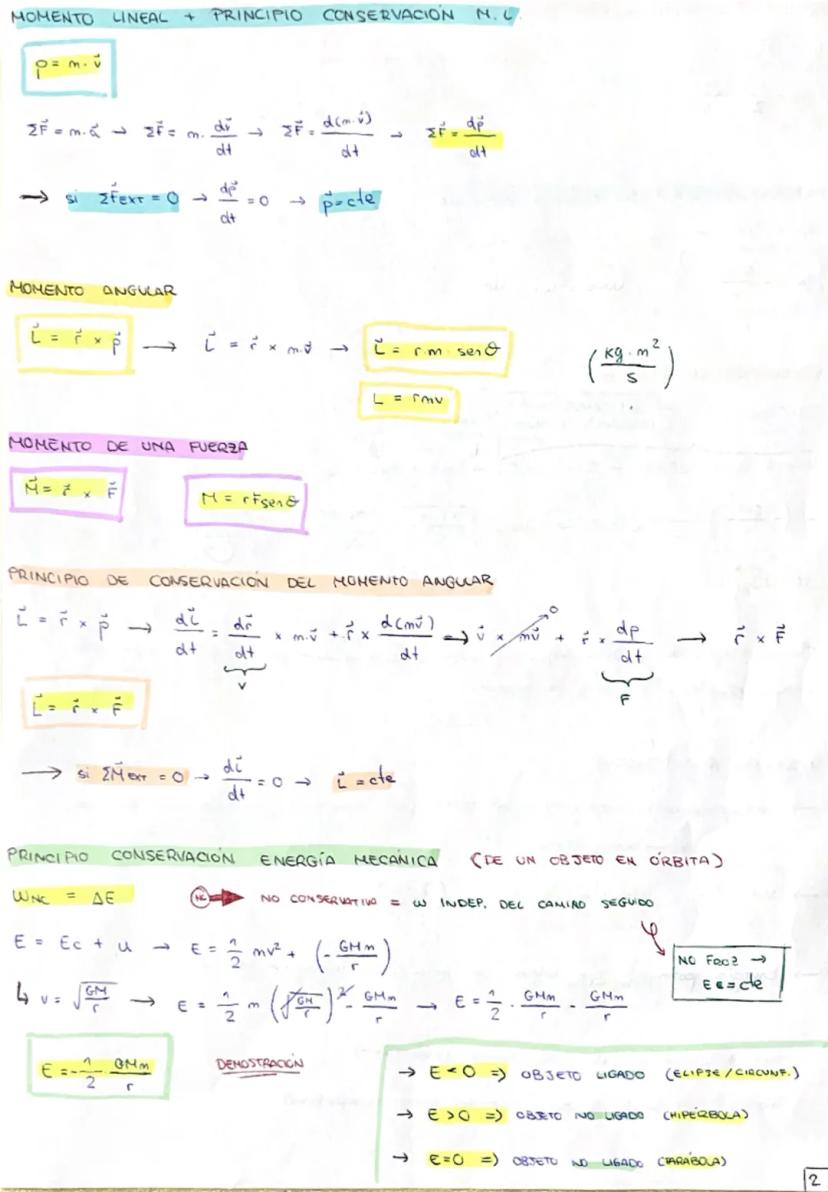 MOMENTO LINEAL + PRINCIPIO CONSERVACIÓN M.L.
p = m · v⃗
ΣF⃗ = m · a⃗ → ΣF⃗ = m · dv⃗/dt → ΣF⃗ = d(m·v⃗)/dt → ΣF⃗ = dp⃗/dt
→ si ΣF⃗EXT = 0 → dp⃗/dt = 0 → p⃗ = cte
MOMENTO ANGULAR
L⃗ = r⃗ × p⃗ → L⃗ = r⃗ × m·v⃗ → L⃗ = r·m· senθ (kg·m²/s)
L = rmv
MOMENTO DE UNA FUERZA
M⃗ = r⃗ × F⃗ M = rFsenθ
PRINCIPIO DE CONSERVACIÓN DEL MOMENTO ANGULAR
L⃗ = r⃗ × p⃗ → dL⃗/dt = dr⃗/dt × m·v⃗ + r⃗ × d(mv⃗)/dt → v⃗ × mv⃗ 0 + r⃗ × dp/dt → r⃗ × F⃗
v F
L⃗ = r⃗ × F⃗
→ si ΣM⃗EXT = 0 → dL⃗/dt = 0 → L⃗ = cte
PRINCIPIO CONSERVACIÓN ENERGÍA MECÁNICA (DE UN OBJETO EN ÓRBITA)
WNC = ΔE NC → NO CONSERVATIVA = W INDEP. DEL CAMINO SEGUIDO
E = Ec + U → E = 1/2 mv² + (- GMm/r)
NO FROZ →
EC = cte
↳ v = √(GM/r) → E = 1/2 m (√(GM/r))² - GMm/r → E = 1/2 · GMm/r - GMm/r
E = - 1/2 GMm/r DEMOSTRACIÓN
→ E < 0 => OBJETO LIGADO (ELIPSE / CIRCUNF.)
→ E > 0 => OBJETO NO LIGADO (HIPÉRBOLA)
→ E = 0 => OBJETO NO LIGADO (PARÁBOLA)
2